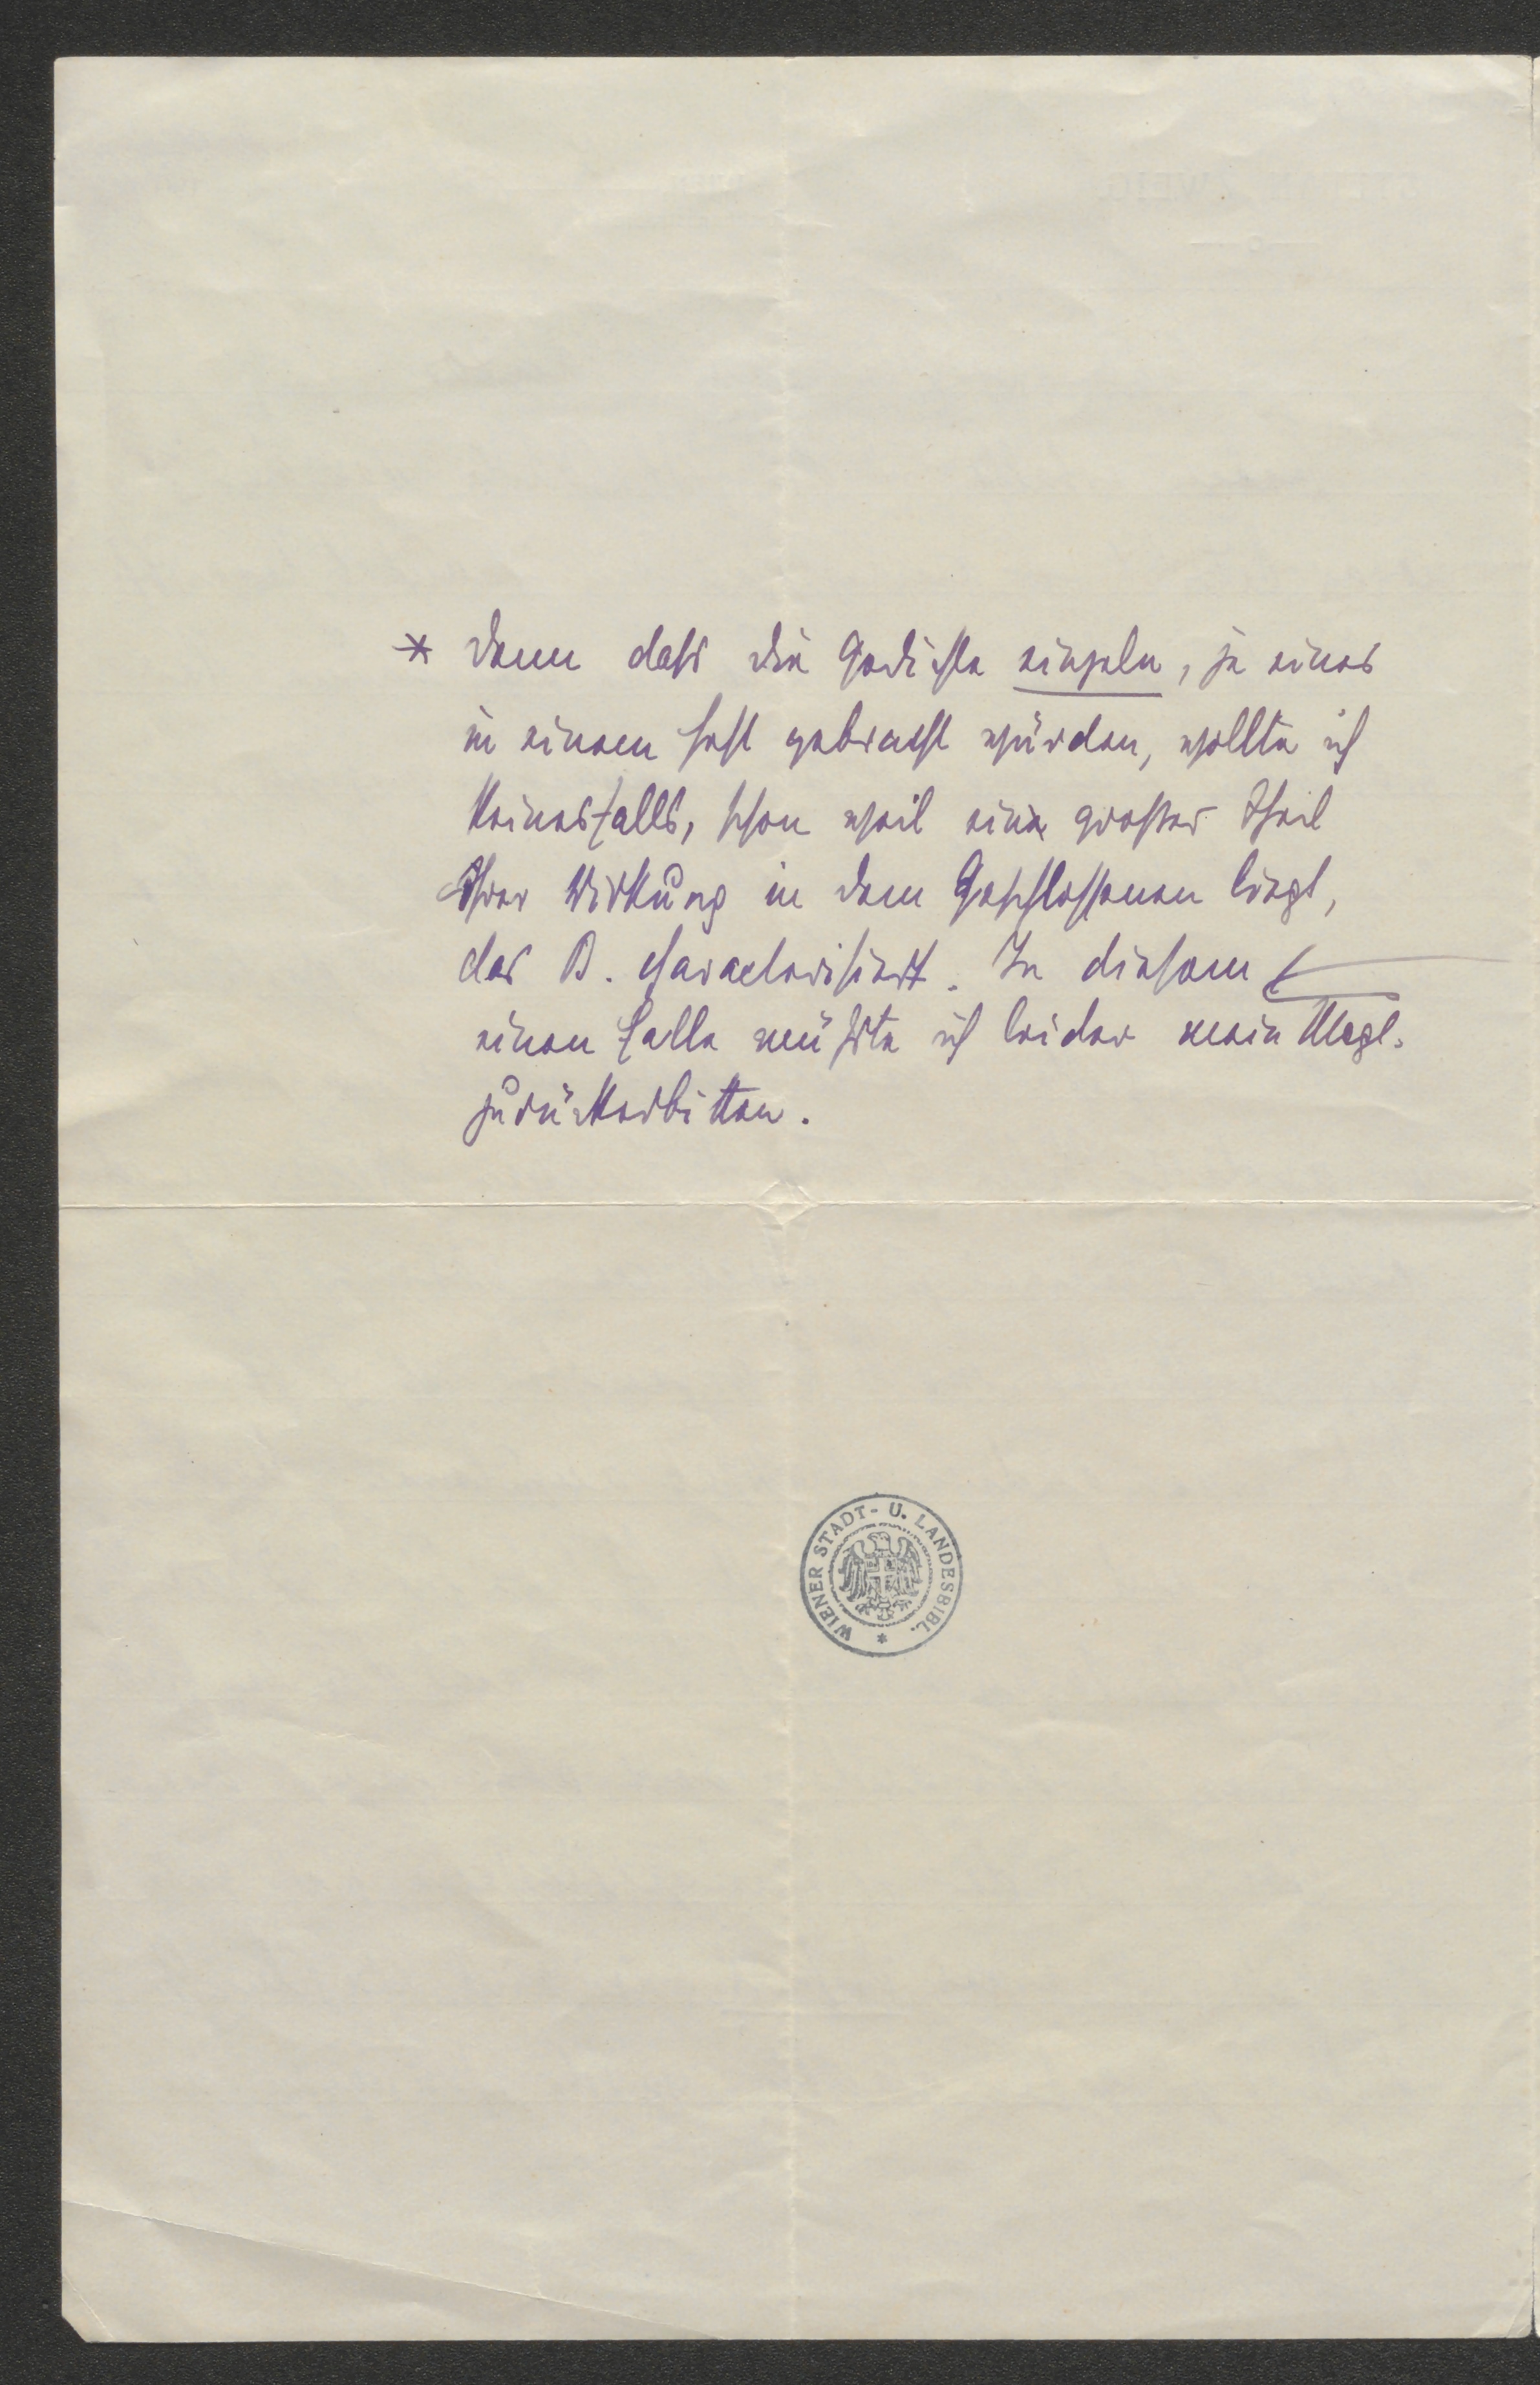 * Denn dass die Gedichte einzeln, je eines
in einem Heft gebracht würden, wollte ich
keinesfalls, schon weil ein grosser Theil
ihrer Wirkung in dem Geschlossenen liegt,
das B. characterisiert. In diesem
einen Falle müsste ich leider mein
zurückerbitten.
WIENER STADT- U. LANDESBIBL. *